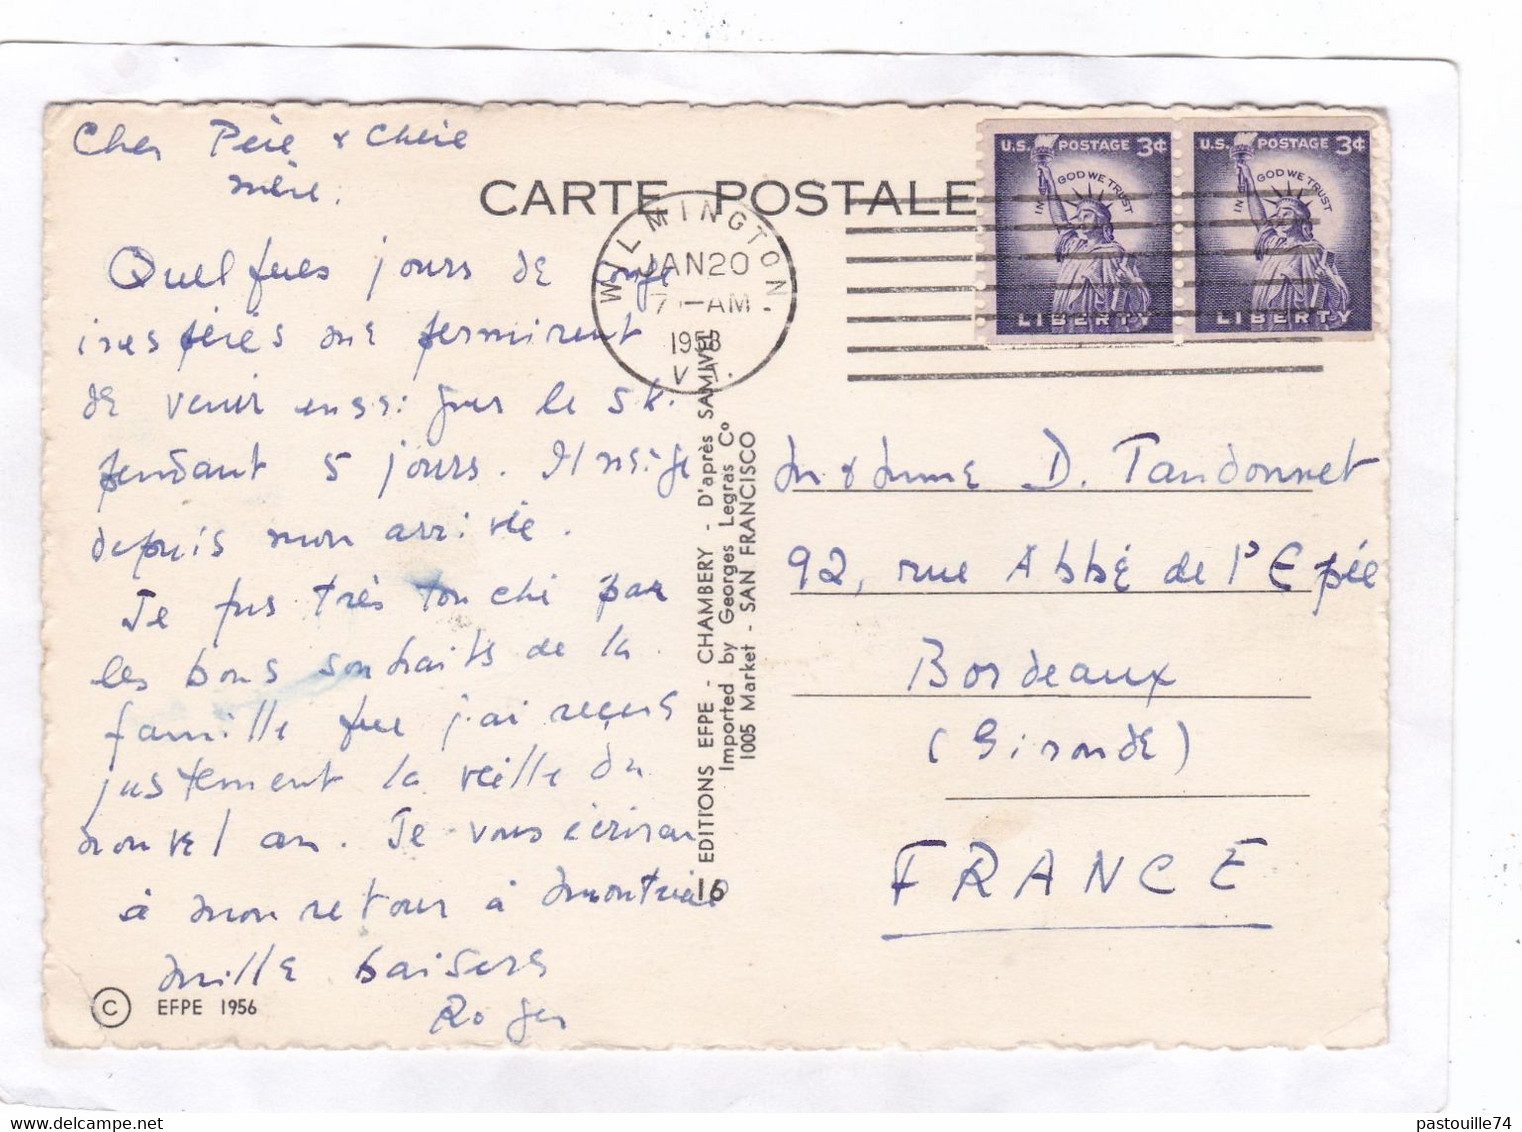 Cher Père & Chère
mère.
CARTE POSTALE
Quelques jours de congé
inespérés me permirent
de venir essai pour le ski
pendant 5 jours. Il neige
depuis mon arrivée.
Je fus très touché par
les bons souhaits de la
famille que j'ai reçus
justement la veille du
nouvel an. Je vous écrirai
à mon retour à Montréal
Mille baisers
Roger
© EFPE 1956
WILMINGTON
JAN 20
7 - AM
1958
VT.
U.S. POSTAGE 3¢
IN GOD WE TRUST
LIBERTY
U.S. POSTAGE 3¢
IN GOD WE TRUST
LIBERTY
16 EDITIONS EFPE - CHAMBERY - D'après SAMIVEL
Imported by Georges Legras Co
1005 Market - SAN FRANCISCO
M & Mme D. Tandonnet
92, rue Abbé de l'Epée
Bordeaux
(Gironde)
FRANCE
pastouille74